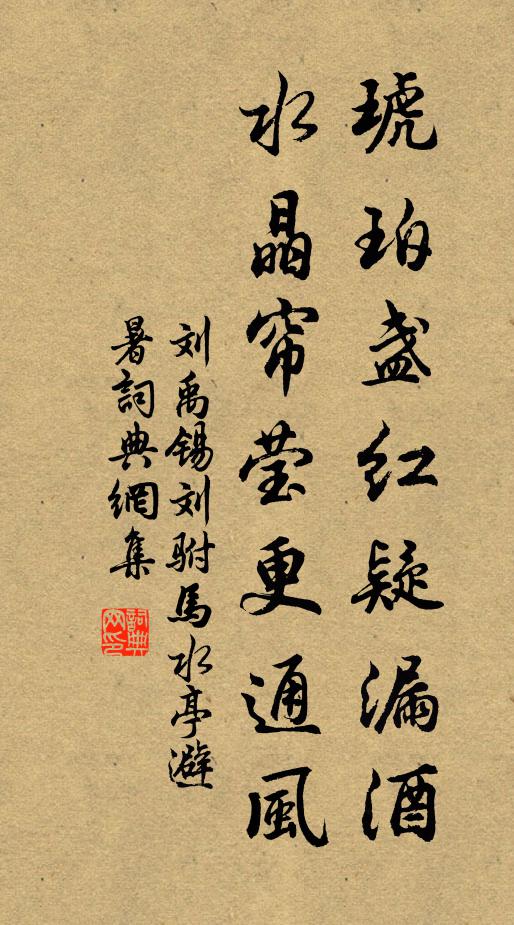 琥珀盏红疑漏酒
水晶帘莹更通風
刘禹锡刘驸馬水亭避
暑詞典網集
詞典
网印